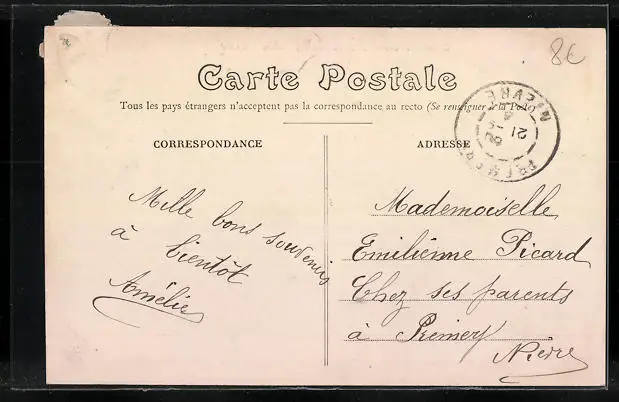 8€
Carte Postale
Tous les pays étrangers n'acceptent pas la correspondance au recto (Se renseigner à la Poste)
CORRESPONDANCE
ADRESSE
NIEVRE
21
Mille bons souvenirs
à bientôt
Amélie
Mademoiselle
Emilienne Picard
Chez ses parents
à Prémery
Nièvre